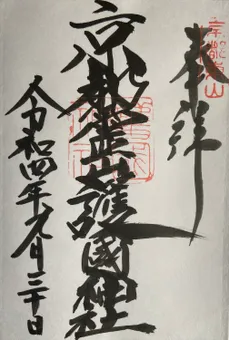 奉拝
京都霊山護國神社
令和四年九月三十日